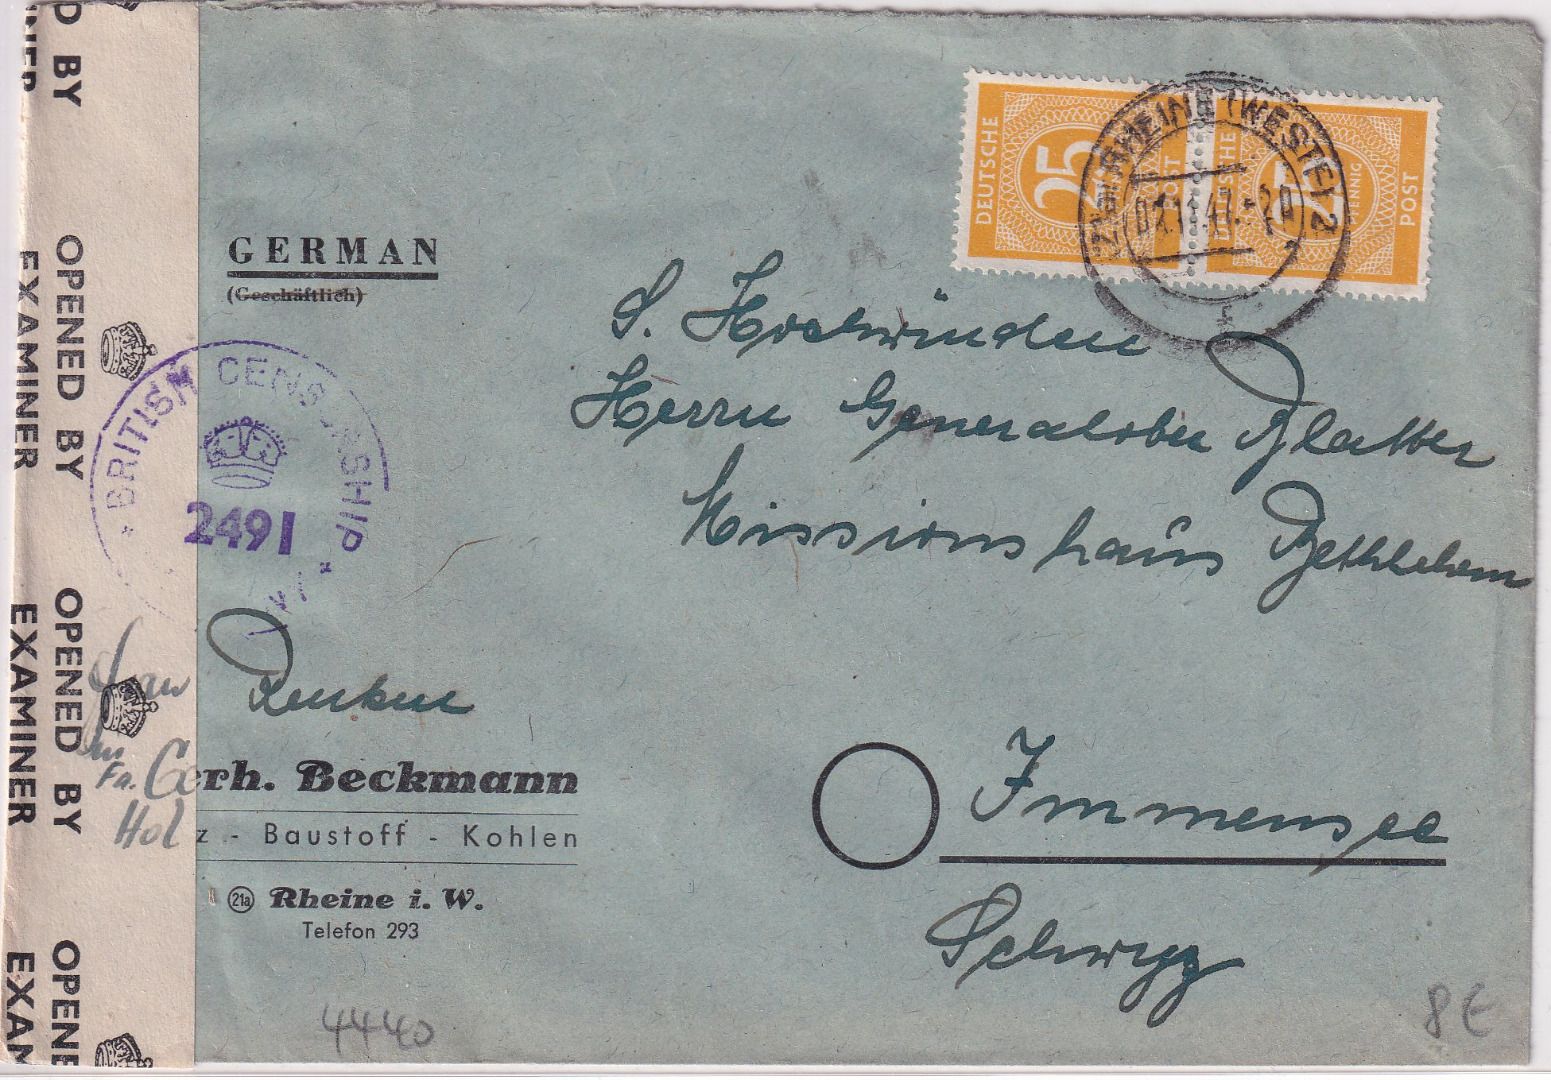 OPENED BY
EXAMINER
OPENED BY
EXAMINER
OPENED BY
EXAMINER
OPENE
EXAM
GERMAN
(Geschäftlich)
BRITISH CENSORSHIP
2491
DEUTSCHE
25
POST
POST
RHEINE (WESTF) 2
S. Hochwürden
Herrn Generalober Blatter
Missionshaus Bethlehem
Immensee
Schwyz
Frau
Fa. Gerh. Beckmann
Holz - Baustoff - Kohlen
21a Rheine i. W.
Telefon 293
4440
8 €